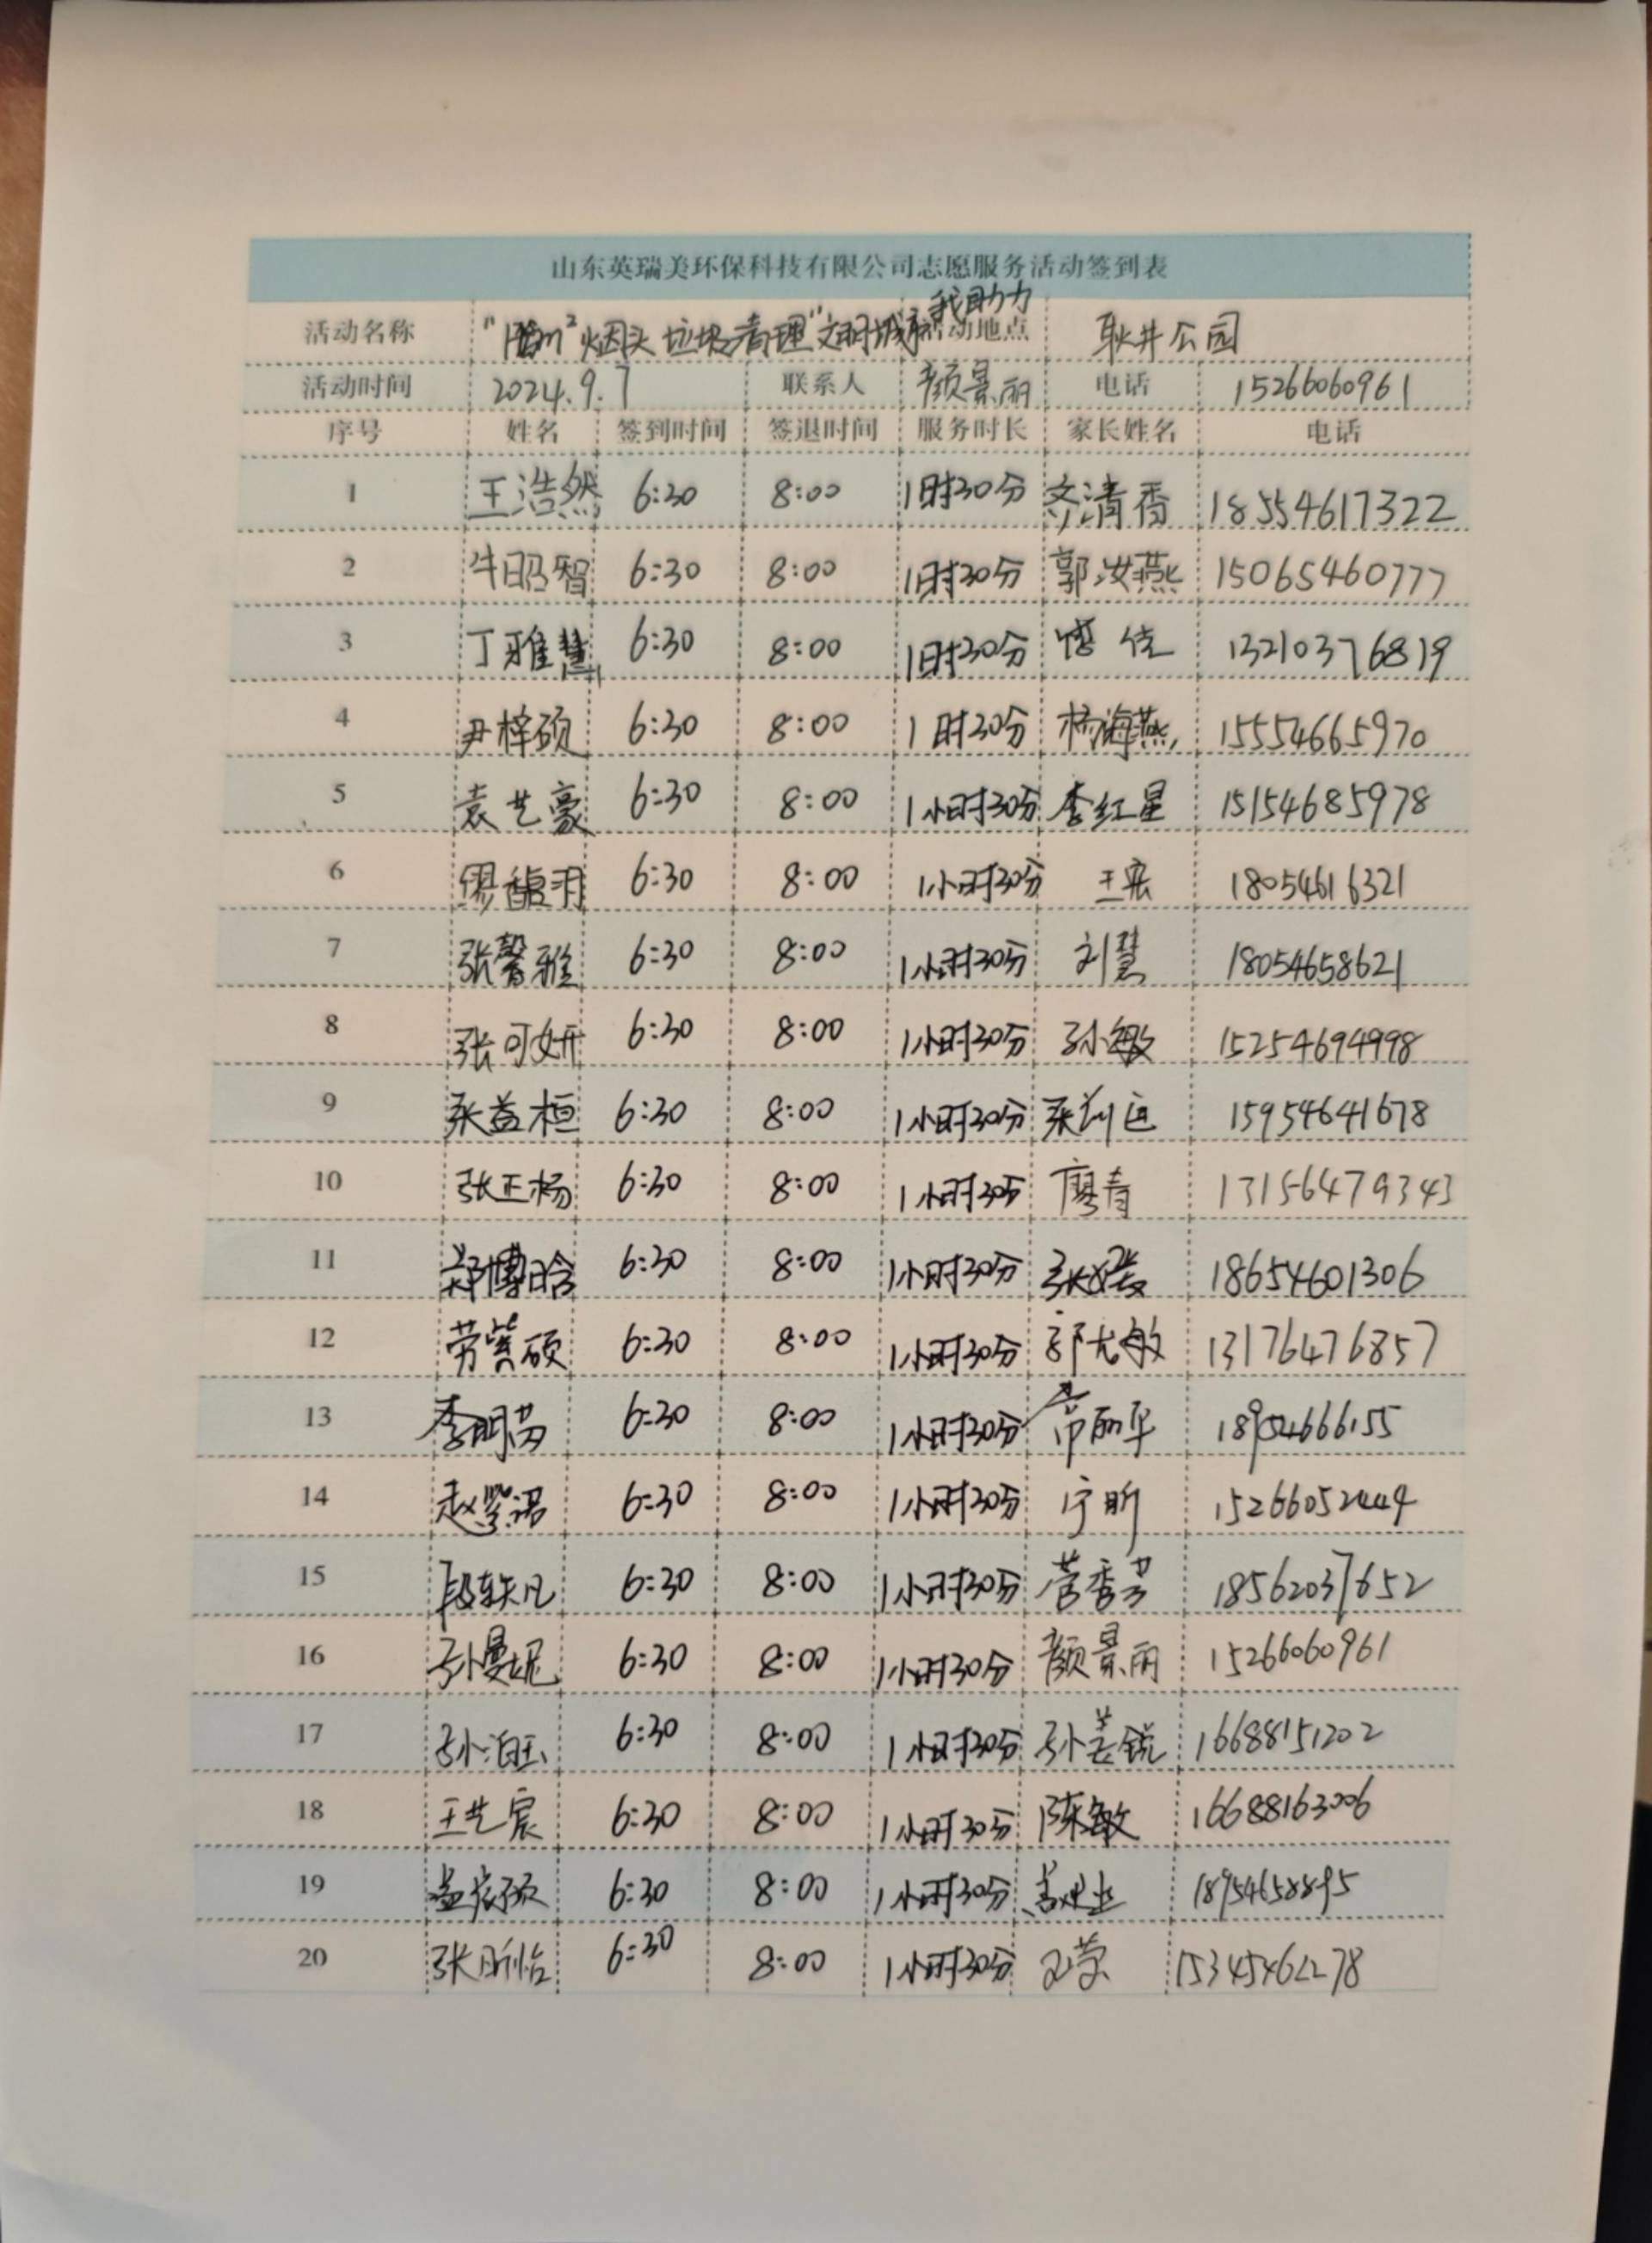 山东英瑞美环保科技有限公司志愿服务活动签到表
我助力
活动名称 "随m²烟头垃圾清理"文明城市 活动地点 耿井公园
活动时间 2024.9.7 联系人 颜景丽 电话 15266060961
序号 姓名 签到时间 签退时间 服务时长 家长姓名 电话
1 王浩然 6:30 8:00 1时30分 齐清香 18554617322
2 牛昭智 6:30 8:00 1时30分 郭汝燕 15065460777
3 丁雅慧 6:30 8:00 1时30分 13210376819
4 尹梓硕 6:30 8:00 1时30分 杨海燕 15554665970
5 袁艺豪 6:30 8:00 1小时30分 李红星 15154685978
6 缪馥羽 6:30 8:00 1小时30分 王宏 18054616321
7 张馨雅 6:30 8:00 1小时30分 刘慧 18054658621
8 张可妍 6:30 8:00 1小时30分 孙敏 15254694998
9 张益桓 6:30 8:00 1小时30分 15954641678
10 张正杨 6:30 8:00 1小时30分 廖青 13156479343
11 郑博晗 6:30 8:00 1小时30分 张媛 18654601306
12 劳紫硕 6:30 8:00 1小时30分 郭尤敏 13176476857
13 李明芮 6:30 8:00 1小时30分 常丽华 18954666155
14 赵紫诺 6:30 8:00 1小时30分 宁昕 15266052449
15 段轶凡 6:30 8:00 1小时30分 菅秀芳 18562037652
16 孙曼妮 6:30 8:00 1小时30分 颜景丽 15266060961
17 孙泊玉 6:30 8:00 1小时30分 孙姜锐 16688151202
18 王艺宸 6:30 8:00 1小时30分 陈敏 16688163006
19 6:30 8:00 1小时30分 18954658895
20 张昕怡 6:30 8:00 1小时30分 15345462278